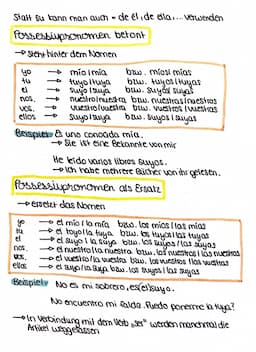 Statt su kann man auch - de él, de ella... verwenden
Possessivpronomen betont
→ steht hinter dem Nomen
yo → mío/mía bzw. míos/mías
tu → tuyo/tuya bzw. tuyos/tuyas
el → suyo/suya bzw. suyos/suyas
nos. → nuestro/nuestra bzw. nuestros/nuestras
vos. → vuestro/vuestra bzw. vuestros/vuestras
ellos → suyo/suya bzw. suyos/suyas
Beispiel: Es una conocida mía.
→ Sie ist eine Bekannte von mir
He leído varios libros suyos.
→ Ich habe mehrere Bücher von ihr gelesen.
Possessivpronomen als Ersatz
→ ersetzt das Nomen
yo → el mío/la mía bzw. los míos/las mías
tu → el tuyo/la tuya bzw. los tuyos/las tuyas
el → el suyo/la suya bzw. los suyos/las suyas
nos. → el nuestro/la nuestra bzw. los nuestros/las nuestras
vos. → el vuestro/la vuestra bzw. los vuestros/las vuestras
ellos → el suyo/la suya bzw. los suyos/las suyas
Beispiel: No es mi sobrero, es (el) suyo.
No encuentro mi falda. Puedo ponerme la tuya?
→ In Verbindung mit dem Verb „ser" werden manchmal die
Artikel weggelassen